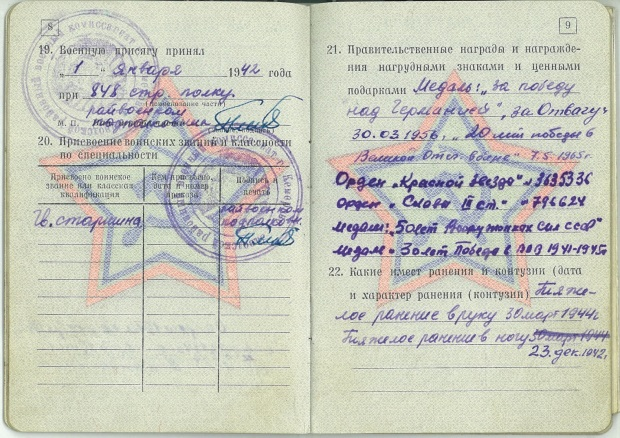 8
19. Военную присягу принял
„1" января 1942 года
при 848 стр. полку.
(наименование части)
райвоенком
м. п.
20. Присвоение воинских званий и классности
по специальности
Присвоено воинское
звание или классная
квалификация
Кем присвоено,
дата и номер
приказа
Подпись и
печать
Гв. старшина
райвоенком
подполковн
9
21. Правительственные награды и награжде-
ния нагрудными знаками и ценными
подарками Медаль: „За победу
над Германией", „За Отвагу"
30.03.1956г. „20 лет победы в
Великой Отеч. войне" 7.5.1965г.
Орден „Красной звезда" № 3635336
Орден „Слави III ст." № 796624
Медаль: „50 лет Вооружонках Сил СССР"
Медаль 30 лет Победа в ВОВ 1941-1945г
22. Какие имеет ранения и контузии (дата
и характер ранения (контузии) Тяже-
лое ранение в руку 30 март 1944г.
Тяжелое ранение в ногу 30 март 1944
23. дек. 1942г.